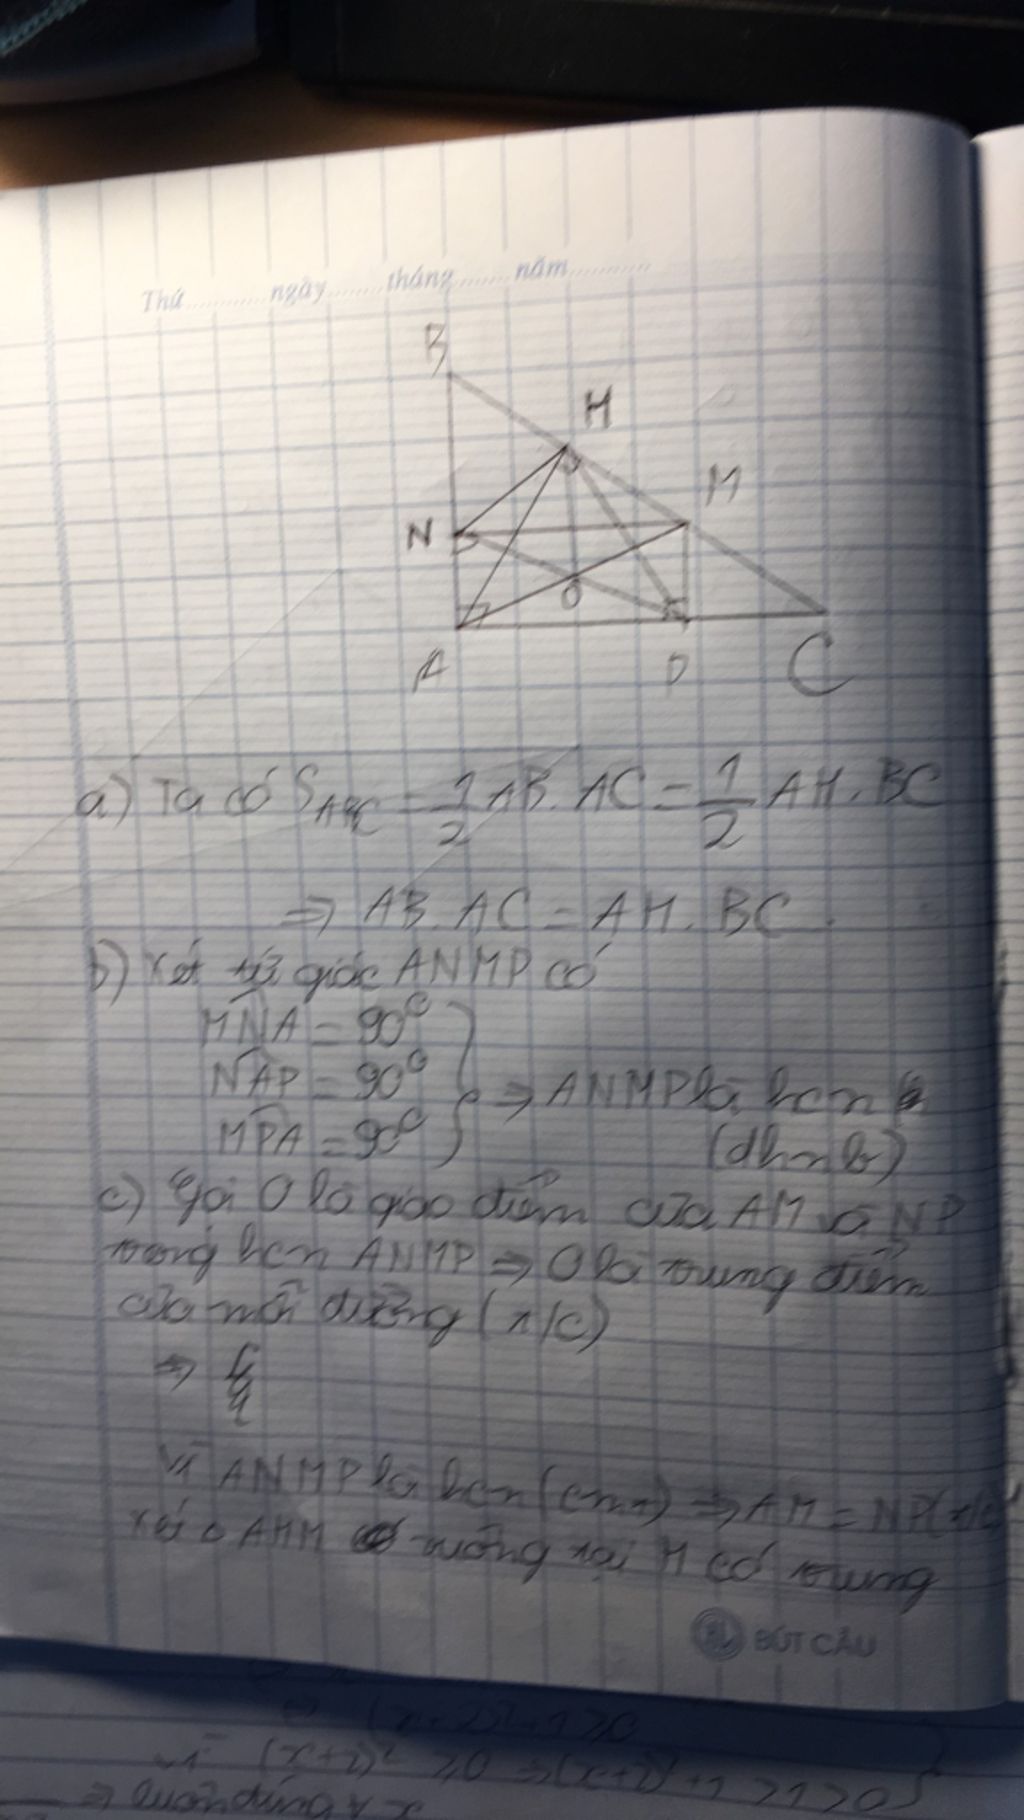 Thứ ............ ngày ........ tháng ........ năm ............
B
H
M
N
O
A
P
C
a) Ta có S ABC = 1/2 AB. AC = 1/2 AH. BC
=> AB. AC = AH. BC.
b) Xét tứ giác ANMP có
MNA = 90°
NAP = 90°
MPA = 90°
=> ANMP là hcn
(dhnb)
c) Gọi O là giao điểm của AM và NP
trong hcn ANMP => O là trung điểm
của mỗi đường (t/c)
=>
Vì ANMP là hcn (cmt) => AM = NP (t/c)
Xét △ AHM vuông tại H có trung
BÚT CẦU
(x+2)²+1>0
vì (x+2)² ≥0 => (x+2)²+1>1>0
=> luôn đúng ∀ x